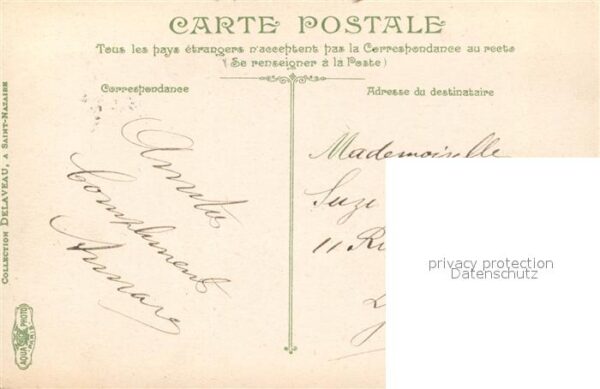 CARTE POSTALE
Tous les pays étrangers n'acceptent pas la Correspondance au recto
(Se renseigner à la Poste)
Correspondance
Adresse du destinataire
COLLECTION DELAVEAU, A SAINT-NAZAIRE
Compliment
Mademoiselle
Suze
11 Ru
privacy protection
Datenschutz
AQUA PHOTO
PARIS